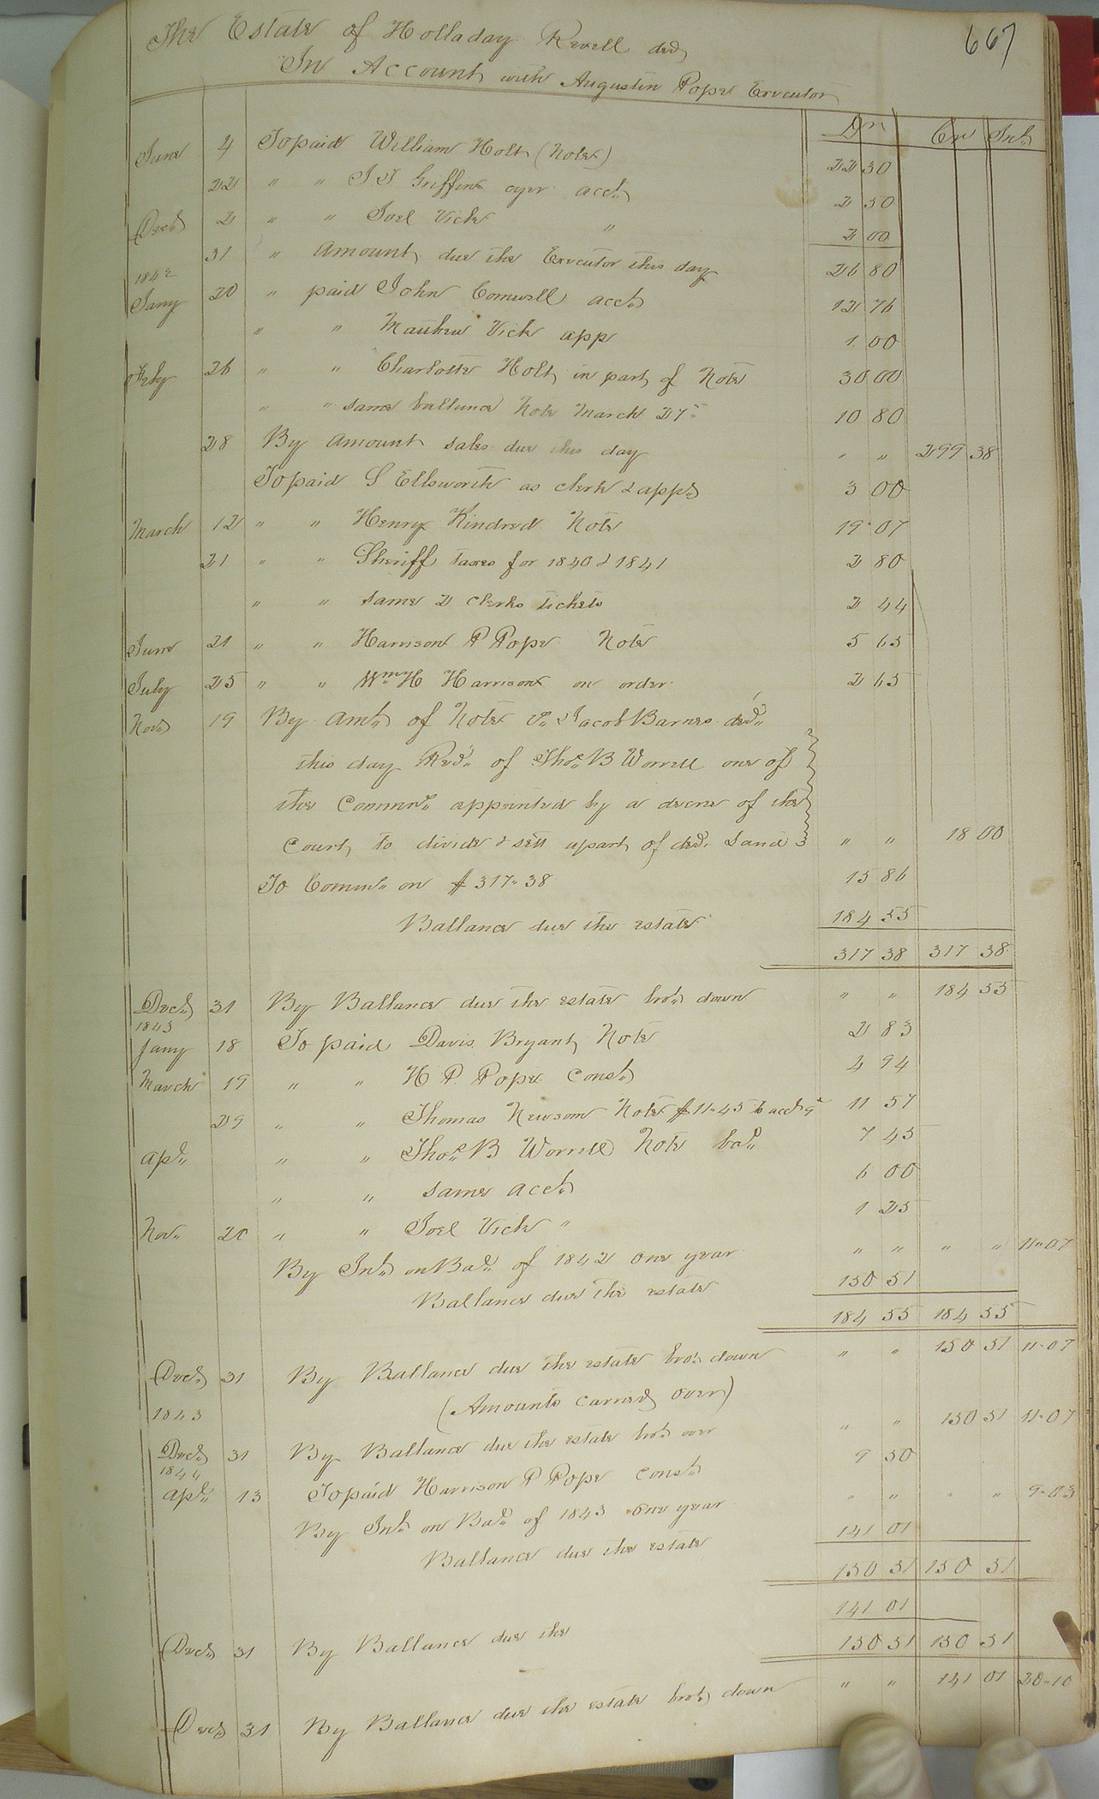 667
The Estate of Holladay Revell decd
In Account with Augustin Pope Executor
Dr Cr Int
June 4 To paid William Holt (Note) 22 30
22 " " J J Griffins acct 2 50
Decb 2 " " Joel Vick " 2 00
31 " Amount due the Executor this day 26 80
1842
Jany 20 " paid John Cornwell acct 12 76
" " Matthew Vick app 1 00
Feby 26 " " Charlotte Holt in part of Note 30 00
" " same ballance Note March 27th 10 80
28 By Amount sales due this day " " 299 38
To paid S Ellsworth as clerk & apps 3 00
March 12 " " Henry Kindred Note 19 07
21 " " Sheriff Taxes for 1840 & 1841 2 80
" " same 2 clerks tickets 2 44
June 21 " " Harrison P Pope Note 5 65
July 25 " " Wm H Harrison on order 2 65
Novr 19 By amt of Note vs Jacob Barnes decd
this day Recd of Thos B Worrell one of
the Commrs appointed by a decree of the
Court to divide & sett apart of decd Land " " 18 00
To Commn on $317-38 15 86
Ballance due the estate 184 55
317 38 317 38
Decb 31 By Ballance due the estate bro't down " " 184 55
1843
Jany 18 To paid Davis Bryant Note 2 83
March 19 " " H P Pope Const 4 94
29 " " Thomas Newsom Note $11-45 & acct 11 57
Apl " " Thos B Worrell Note bal 7 45
" " same acct 6 00
Nov 20 " " Joel Vick " 1 25
By Int on Bal of 1842 one year " " " " 11-07
Ballance due the estate 150 51
184 55 184 55
Decb 31 By Ballance due the estate bro't down " " 150 51 11-07
(Amounts carried over)
1843
Decb 31 By Ballance due the estate bro't over " " 150 51 11-07
1844
Apl 13 To paid Harrison P Pope Const 9 50
By Int on Bal of 1843 one year " " " " 9-03
Ballance due the estate 141 01
150 51 150 51
141 01
Decb 31 By Ballance due the 150 51 150 51
Decb 31 By Ballance due the estate bro't down " " 141 01 20-10